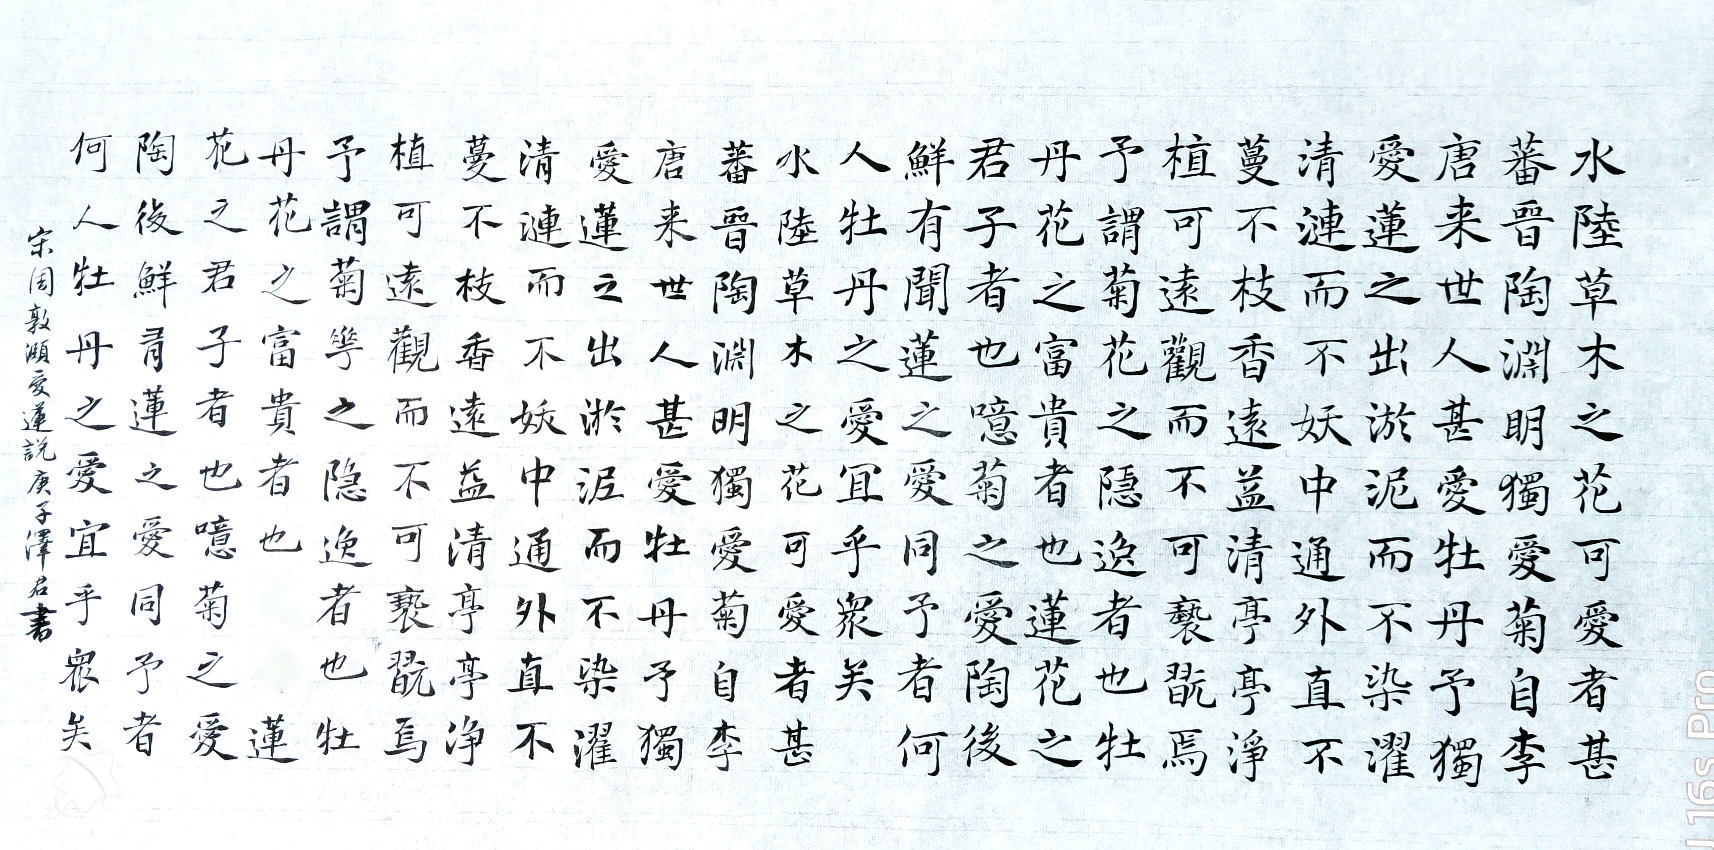 水陸草木之花可愛者甚
蕃晉陶淵明獨愛菊自李
唐来世人甚愛牡丹予獨
愛蓮之出淤泥而不染濯
清漣而不妖中通外直不
蔓不枝香遠益清亭亭淨
植可遠觀而不可褻翫焉
予謂菊花之隱逸者也牡
丹花之富貴者也蓮花之
君子者也噫菊之愛陶後
鮮有聞蓮之愛同予者何
人牡丹之愛宜乎眾矣
水陸草木之花可愛者甚
蕃晉陶淵明獨愛菊自李
唐来世人甚愛牡丹予獨
愛蓮之出淤泥而不染濯
清漣而不妖中通外直不
蔓不枝香遠益清亭亭净
植可遠觀而不可褻翫焉
予謂菊華之隐逸者也牡
丹花之富貴者也蓮
花之君子者也噫菊之愛
陶後鮮有蓮之愛同予者
何人牡丹之愛宜乎眾矣
宋周敦灝愛蓮說庚子澤君書
16s Pro